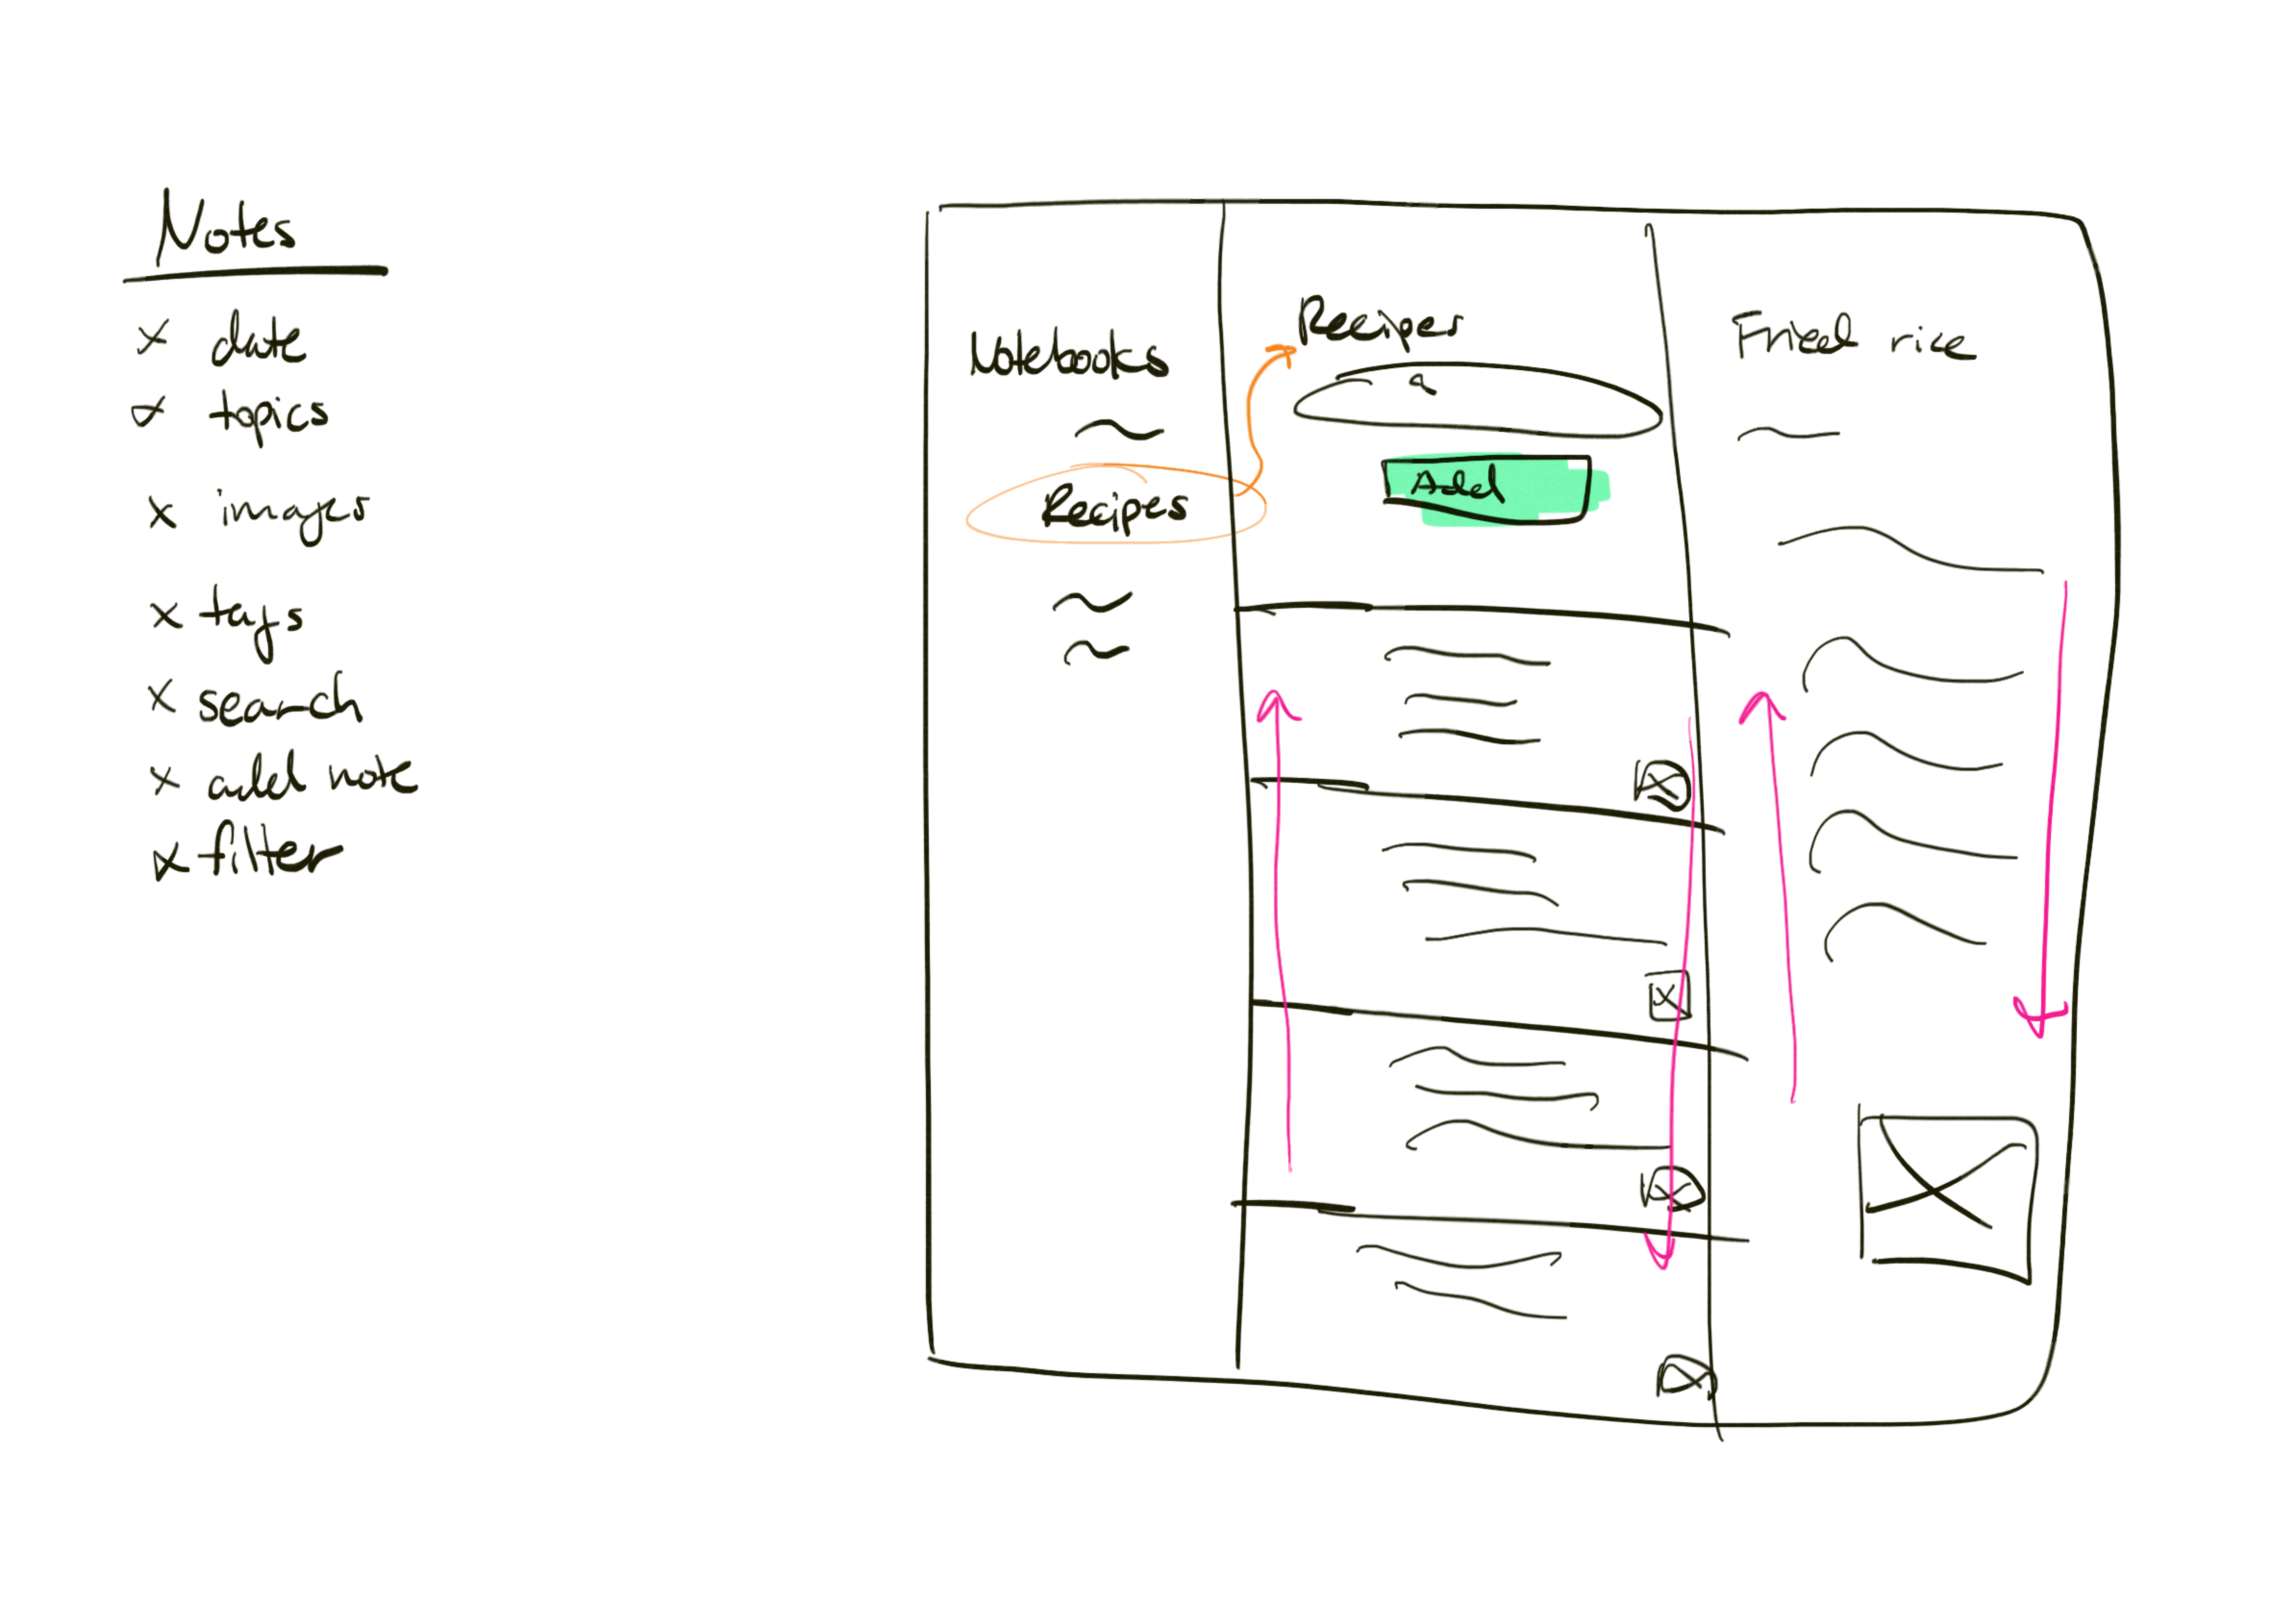 Notes
x date
x topics
x images
x tags
x search
x add note
x filter
Notebooks
Recipes
Recipes
Add
Fried rice